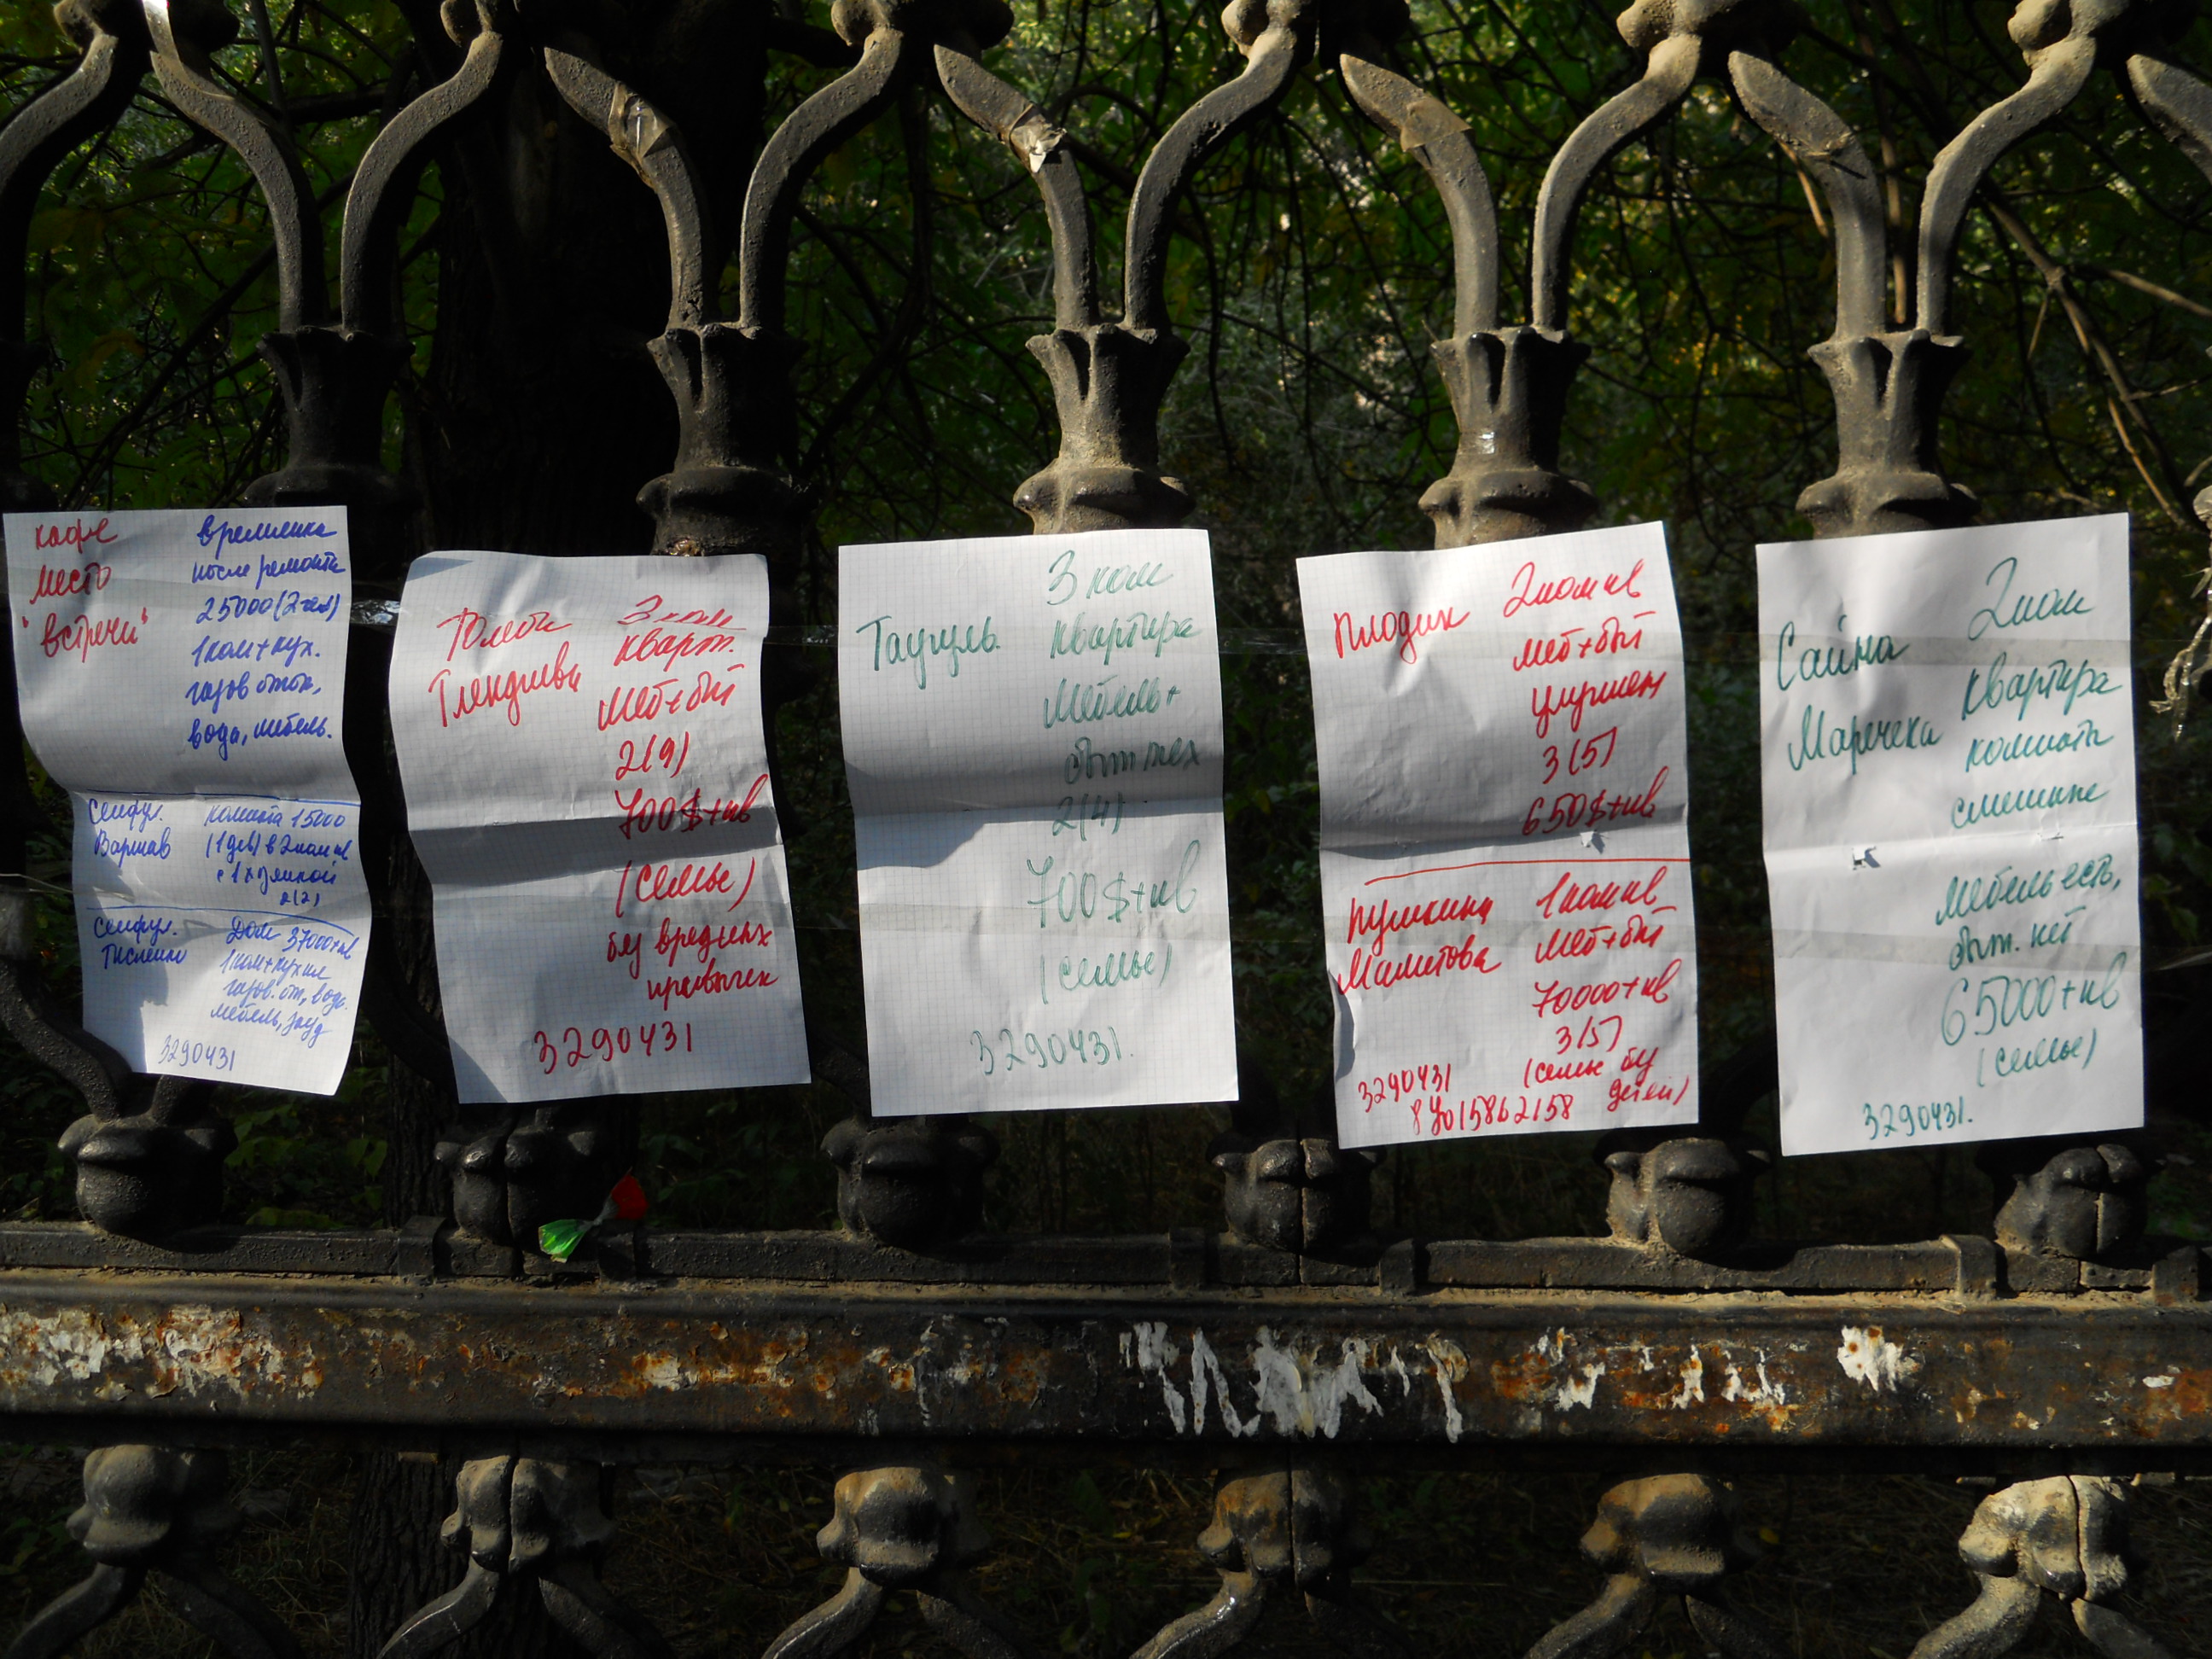 кафе
место
"встречи"
времянка
после ремонта
25000 (2чел)
1ком+кух.
газов отоп,
вода, мебель.
Сейфул.
Варшав
комната 15000
(1дев) в 2комкв
с 1 хозяйкой
2(2)
Сейфул.
Дом 37000+кв
1ком+кухня
газов. от, вода
мебель,
3290431
Толеби
Тлендиева
3 ком.
кварт.
меб+быт
2(9)
700$+кв
(семье)
без вредных
привычек
3290431
Таугуль.
3 ком
квартира
мебель+
быт тех
2(4)
700$+кв
(семье)
3290431.
Плодик
2комкв
меб+быт
улучшен
3(5)
650$+кв
Пушкина
Маметова
1комкв
меб+быт
70000+кв
3(5)
(семье без
детей)
3290431
87015862158
Саина
Маречека
2ком
квартира
комнаты
смешные
мебель есть,
быт. нет
65000+кв
(семье)
3290431.